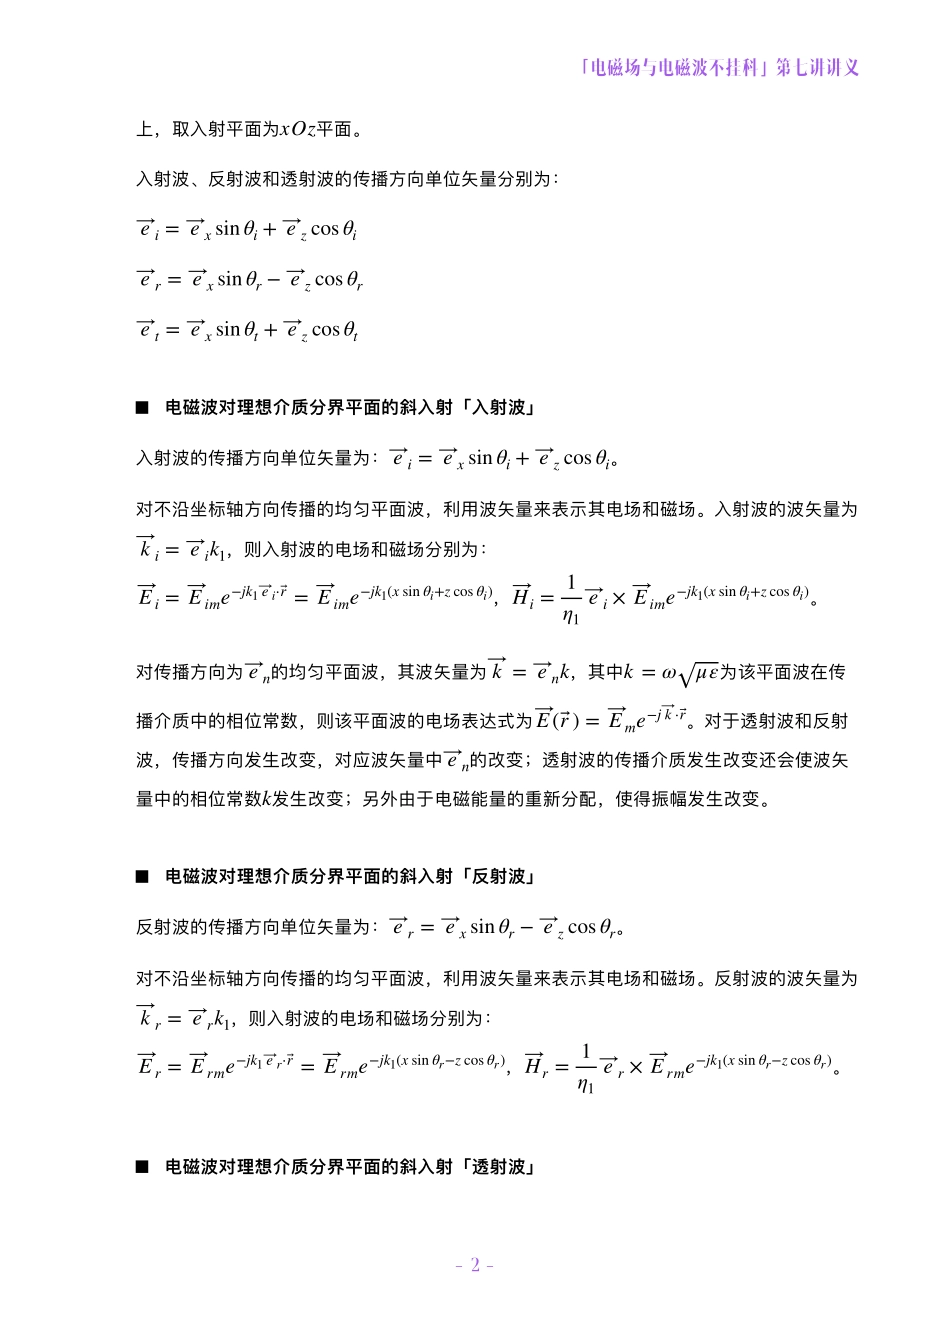 「电磁场与电磁波不挂科」第七讲讲义
上，取入射平面为$xOz$平面。
入射波、反射波和透射波的传播方向单位矢量分别为：
$\overrightarrow{e}_i = \overrightarrow{e}_x \sin\theta_i + \overrightarrow{e}_z \cos\theta_i$
$\overrightarrow{e}_r = \overrightarrow{e}_x \sin\theta_r - \overrightarrow{e}_z \cos\theta_r$
$\overrightarrow{e}_t = \overrightarrow{e}_x \sin\theta_t + \overrightarrow{e}_z \cos\theta_t$
■ 电磁波对理想介质分界平面的斜入射「入射波」
入射波的传播方向单位矢量为：$\overrightarrow{e}_i = \overrightarrow{e}_x \sin\theta_i + \overrightarrow{e}_z \cos\theta_i$。
对不沿坐标轴方向传播的均匀平面波，利用波矢量来表示其电场和磁场。入射波的波矢量为
$\overrightarrow{k}_i = \overrightarrow{e}_i k_1$，则入射波的电场和磁场分别为：
$\overrightarrow{E}_i = \overrightarrow{E}_{im} e^{-jk_1 \overrightarrow{e}_i \cdot \vec{r}} = \overrightarrow{E}_{im} e^{-jk_1(x\sin\theta_i + z\cos\theta_i)}$，$\overrightarrow{H}_i = \frac{1}{\eta_1} \overrightarrow{e}_i \times \overrightarrow{E}_{im} e^{-jk_1(x\sin\theta_i + z\cos\theta_i)}$。
对传播方向为$\overrightarrow{e}_n$的均匀平面波，其波矢量为$\overrightarrow{k} = \overrightarrow{e}_n k$，其中$k = \omega\sqrt{\mu\varepsilon}$为该平面波在传
播介质中的相位常数，则该平面波的电场表达式为$\overrightarrow{E}(\vec{r}) = \overrightarrow{E}_m e^{-j\overrightarrow{k} \cdot \vec{r}}$。对于透射波和反射
波，传播方向发生改变，对应波矢量中$\overrightarrow{e}_n$的改变；透射波的传播介质发生改变还会使波矢
量中的相位常数$k$发生改变；另外由于电磁能量的重新分配，使得振幅发生改变。
■ 电磁波对理想介质分界平面的斜入射「反射波」
反射波的传播方向单位矢量为：$\overrightarrow{e}_r = \overrightarrow{e}_x \sin\theta_r - \overrightarrow{e}_z \cos\theta_r$。
对不沿坐标轴方向传播的均匀平面波，利用波矢量来表示其电场和磁场。反射波的波矢量为
$\overrightarrow{k}_r = \overrightarrow{e}_r k_1$，则入射波的电场和磁场分别为：
$\overrightarrow{E}_r = \overrightarrow{E}_{rm} e^{-jk_1 \overrightarrow{e}_r \cdot \vec{r}} = \overrightarrow{E}_{rm} e^{-jk_1(x\sin\theta_r - z\cos\theta_r)}$，$\overrightarrow{H}_r = \frac{1}{\eta_1} \overrightarrow{e}_r \times \overrightarrow{E}_{rm} e^{-jk_1(x\sin\theta_r - z\cos\theta_r)}$。
■ 电磁波对理想介质分界平面的斜入射「透射波」
- 2 -